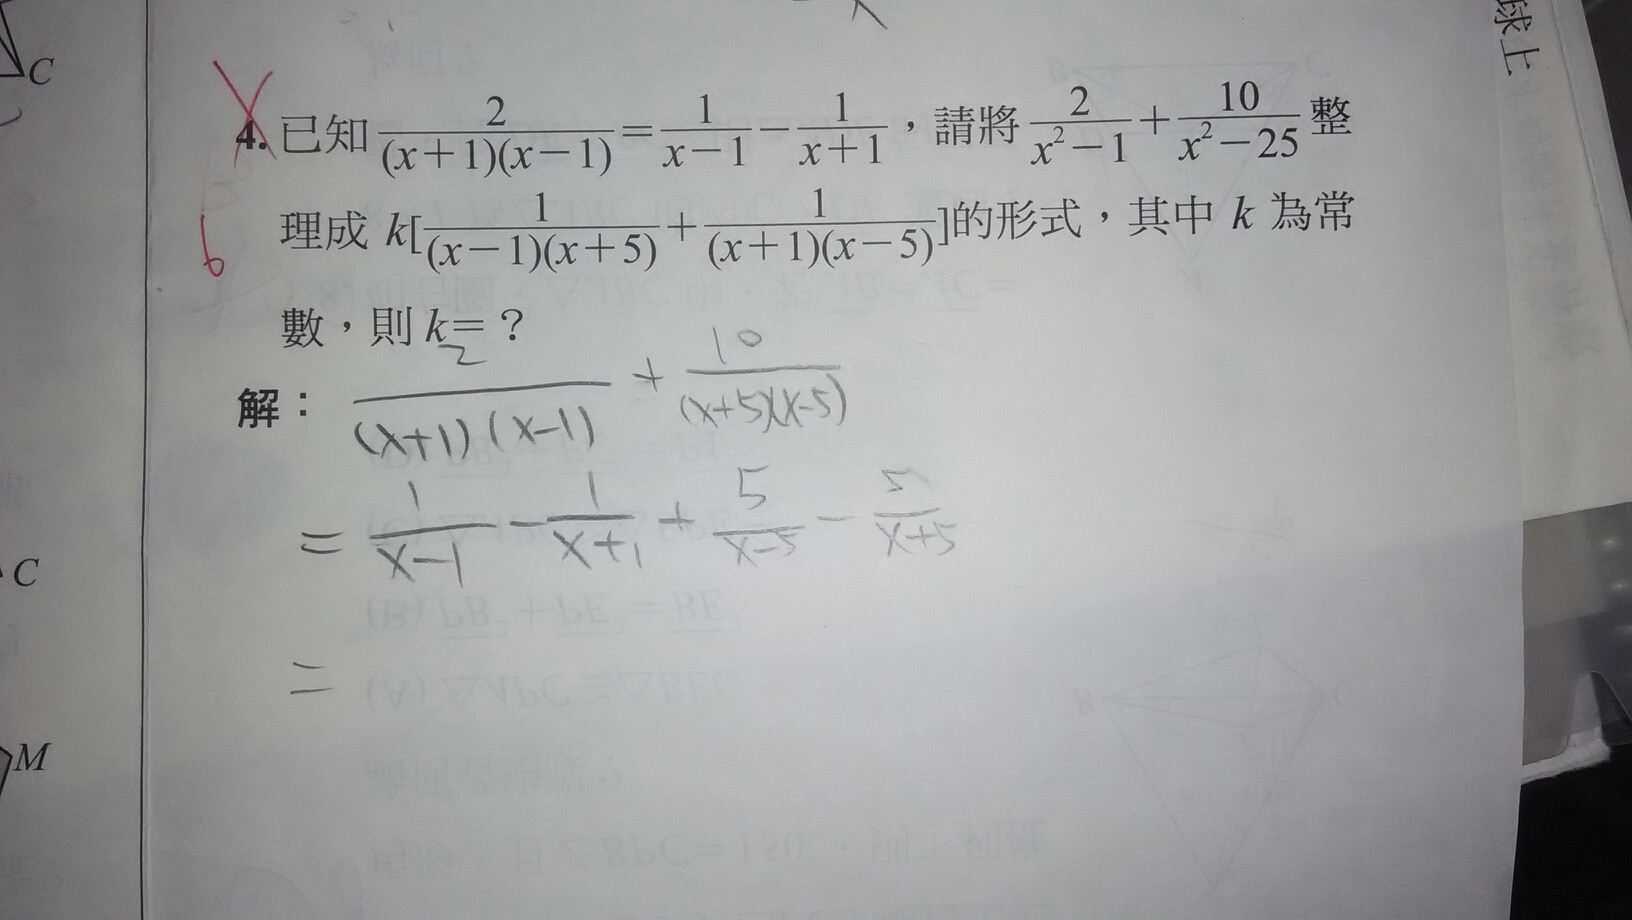 球上
C
4. 已知 2/((x+1)(x−1)) = 1/(x−1) − 1/(x+1)，請將 2/(x²−1) + 10/(x²−25) 整
理成 k[1/((x−1)(x+5)) + 1/((x+1)(x−5))]的形式，其中 k 為常
6
數，則 k=？
解： 2/((x+1)(x-1)) + 10/((x+5)(x-5))
= 1/(x-1) - 1/(x+1) + 5/(x-5) - 5/(x+5)
C
=
M